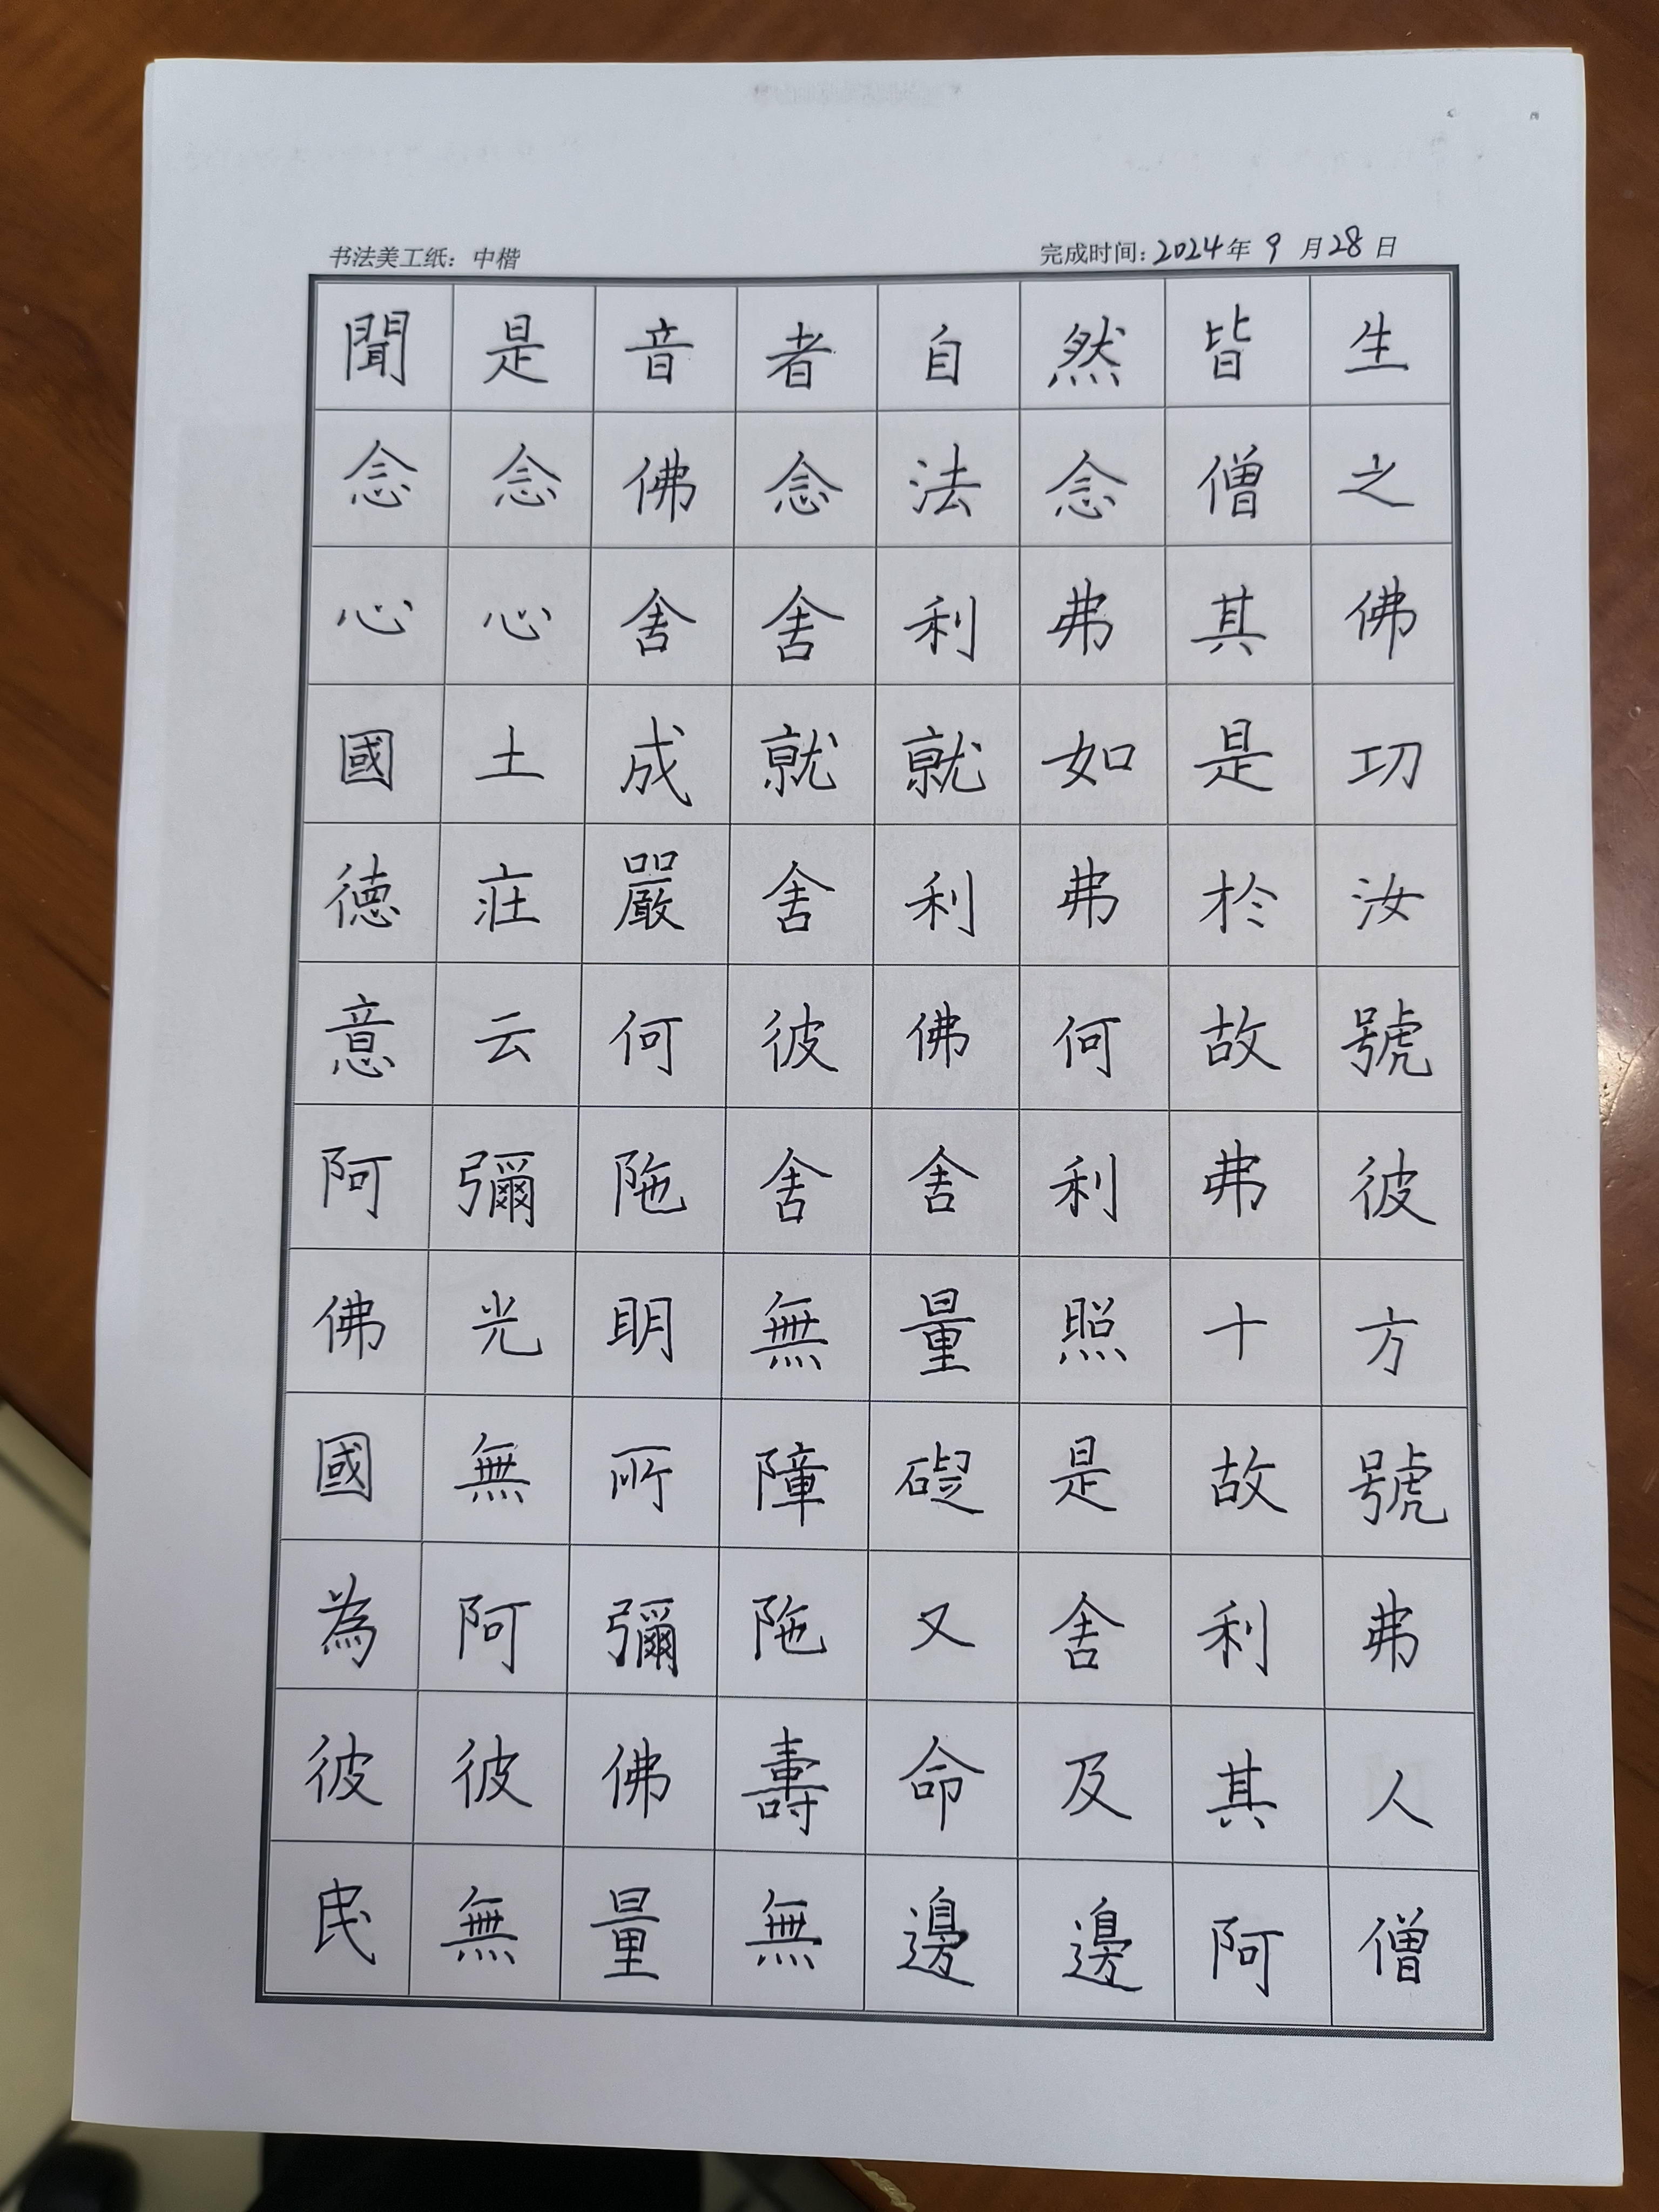 书法美工纸：中楷
完成时间：2024年9月28日
聞是音者自然皆生
念念佛念法念僧之
心心舍舍利弗其佛
國土成就就如是功
德莊嚴舍利弗於汝
意云何彼佛何故號
阿彌陁舍舍利弗彼
佛光明無量照十方
國無所障礙是故號
為阿彌陁又舍利弗
彼彼佛壽命及其人
民無量無邊邊阿僧